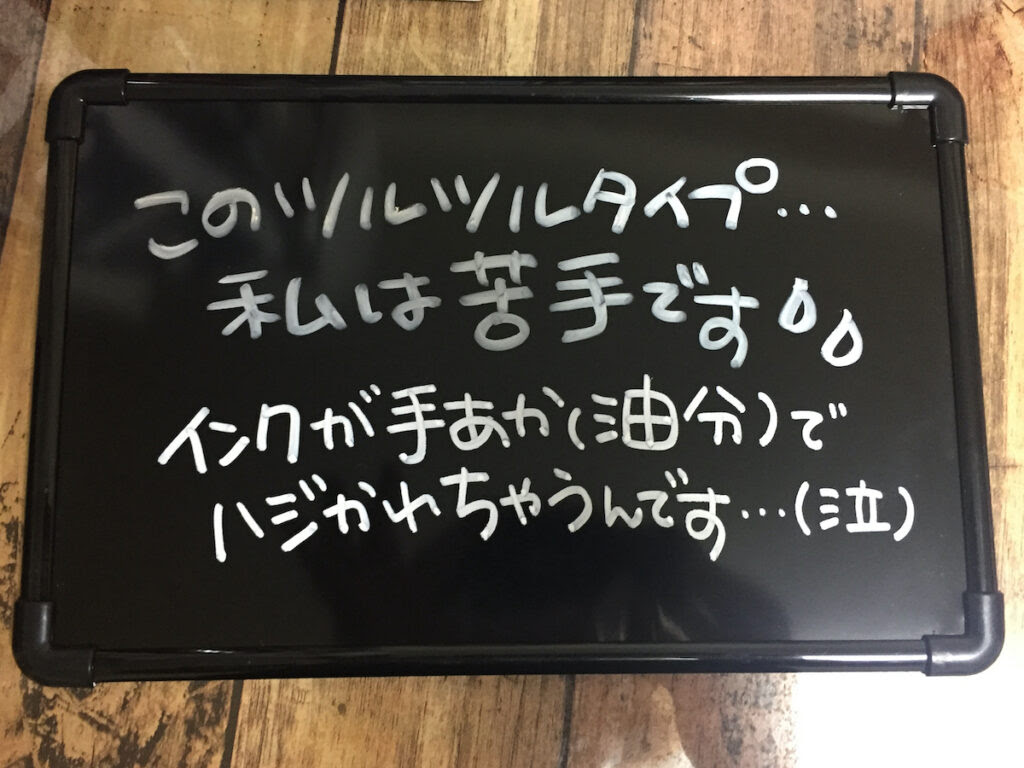 このツルツルタイプ…
私は苦手です
インクが手あか(油分)で
ハジかれちゃうんです…(泣)